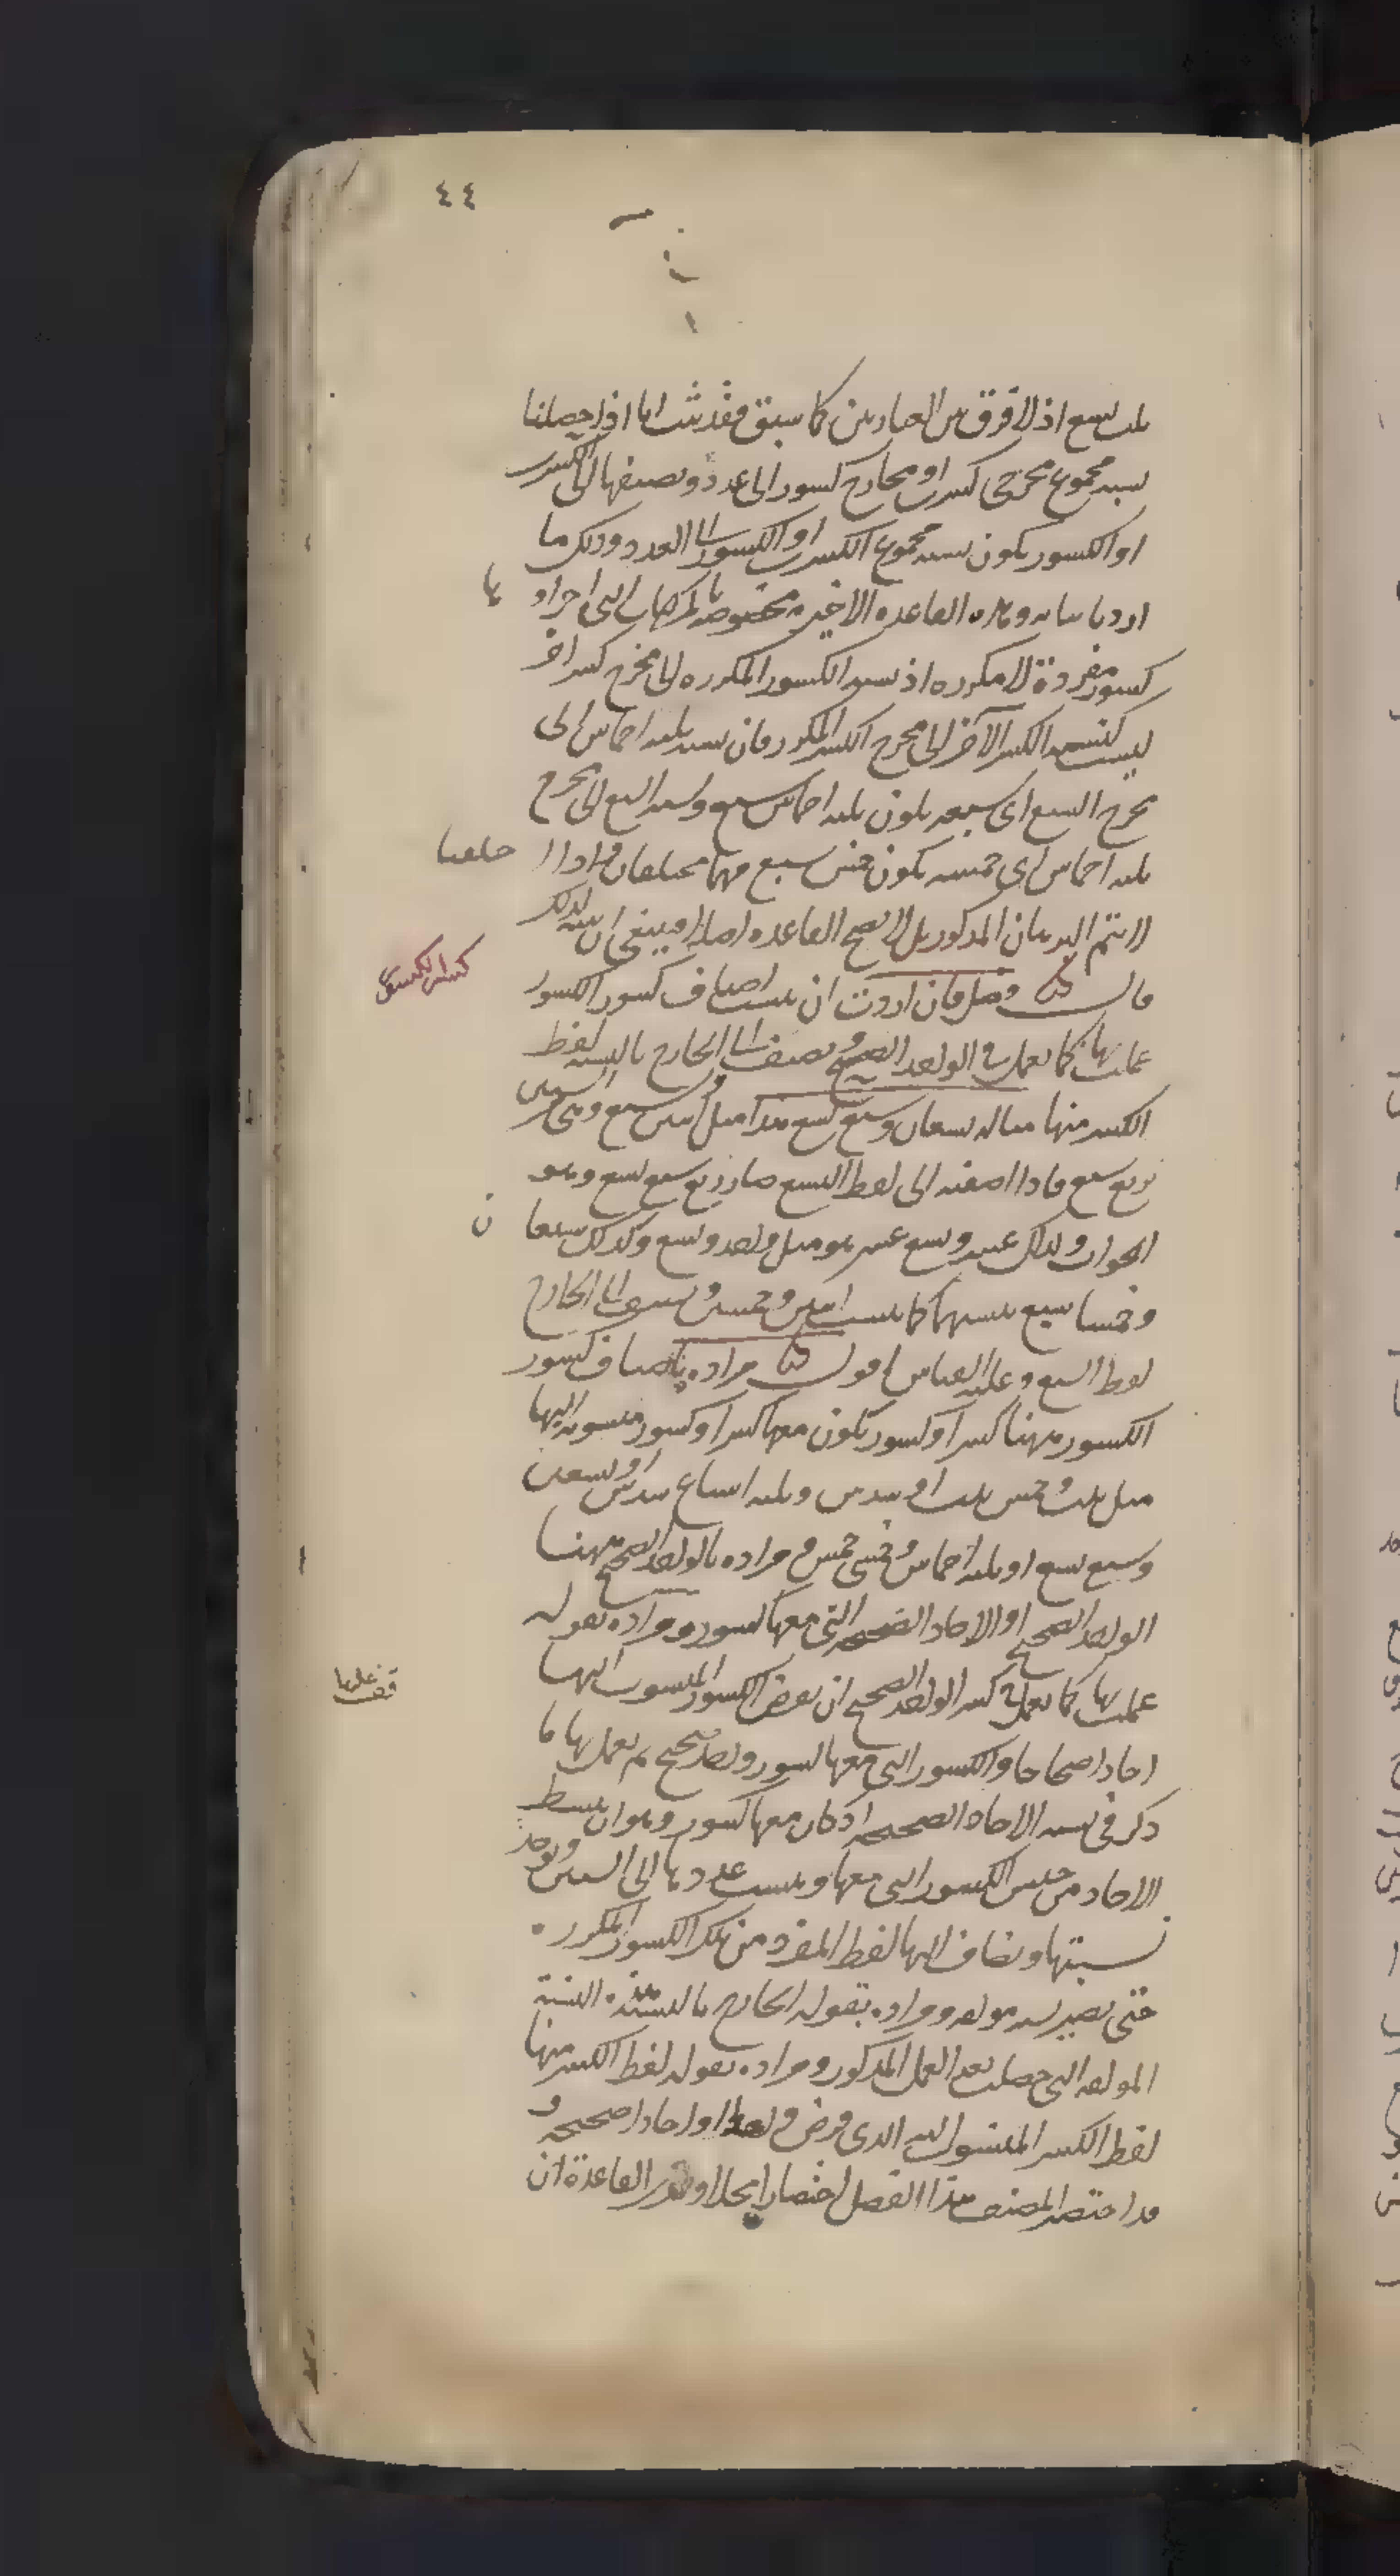 ٤٤
ثلث تسع اذ لا فرق بين العبارتين كما سبق فقد ثبت انا اذا حصلنا
نسبة مجموع مخرجي كسرين او مخارج كسور الى عدد ونصفها الى الكسرين
او الكسور يكون نسبة مجموع الكسرين او الكسور الى العدد وذلك ما
اردنا بيانه وهذه القاعدة الاخيرة مخصوصة بالمركبات التي اجزاوها
كسور مفردة لا مكررة اذ نسبة الكسور المكررة الى مخرج كسر اخر
ليست كنسبة الكسر الآخر الى مخرج الكسر المكرر فان نسبة ثلثة اخماس الى
مخرج السبع اي سبعة يكون ثلثة اخماس سبع ونسبة السبع الى مخرج
ثلثة اخماس اي خمسة يكون خمس سبع فهما مختلفان واذا اختلفتا
لا يتم البرهان المذكور بل لا تصح القاعدة اصلا فينبغي ان يتنبه لذلك
كسر الكسور
قال فصل فان اردت ان تنسب اصناف كسور الكسور
عملت بها كما تعمل في الواحد الصحيح وتضيف الى الخارج بالنسبة لفظ
الكسر منها مثاله تسعان وسبع تسع هذا مثل اثنين وسبع وهي من الستين
ربع سبع فاذا اضفته الى لفظ التسع صار ربع سبع تسع وهو
الجواب وكذلك عشر وتسع عشر هو مثل واحد وتسع وكذلك سبعان
وخمسا سبع تنسبهما كما تنسب اثنين وخمسين وتضيف الى الخارج
لفظ السبع وعليه القياس اقول مراده باصناف كسور
الكسور ههنا كسر او كسور تكون معها كسر او كسور منسوبة اليها
مثل ثلث وخمس ثلث او سدس وثلثة اسباع سدس او تسعين
وسبع تسع او ثلثة اخماس وخمسي خمس ومراده بالواحد الصحيح ههنا
الواحد الصحيح او الاحاد الصحيحة التي معها كسور ومراده بقوله
عملت بها كما تعمل في كسر الواحد الصحيح ان تفرض الكسور المنسوب اليها
قف عليها
احادا صحاحا والكسور التي معها كسور واحد صحيح ثم تعمل بها ما
ذكر في نسبة الاحاد الصحيحة اذ كان معها كسور وهو ان تبسط
الاحاد من جنس الكسور التي معها وتنسب عددها الى الستين وتوخذ
نسبتها وتضاف اليها لفظ المفرد من تلك الكسور المكررة
حتى يصير نسبة مولفة ومراده بقوله الخارج بالنسبة هذه النسبة
المولفة التي حصلت بعد العمل المذكور ومراده بقوله لفظ الكسر منها
لفظ الكسر المنسوب اليه الذي فرض واحدا او احادا صحيحة و
قد اختصر المصنف هذا الفصل اختصارا مخلا وتقدير القاعدة ان